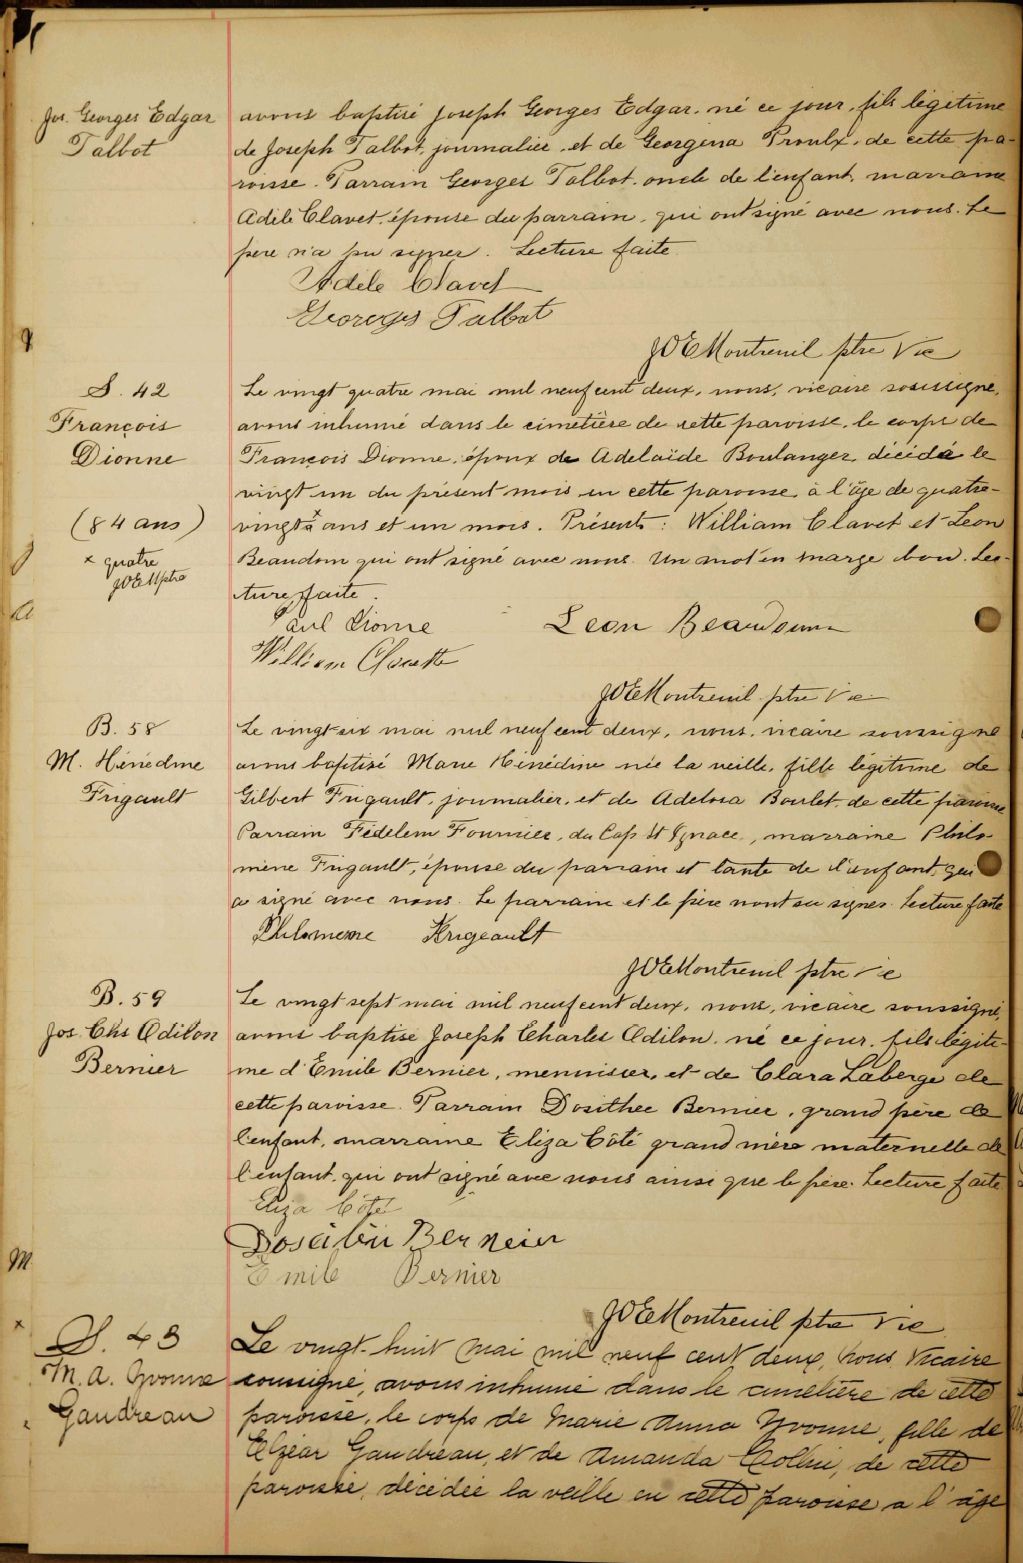 Jos. Georges Edgar
Talbot
avons baptisé Joseph Georges Edgar, né ce jour, fils légitime
de Joseph Talbot, journalier, et de Georgena Proulx, de cette pa-
roisse. Parrain Georges Talbot, oncle de l'enfant, marraine
Adèle Clavet, épouse du parrain, qui ont signé avec nous. Le
père n'a pu signer. Lecture faite
Adèle Clavet
Georges Talbot
JOEMontreuil ptre Vic
S. 42
François
Dionne
(84 ans)
x quatre
JOEM ptre
Le vingt quatre mai mil neuf cent deux, nous, vicaire soussigné,
avons inhumé dans le cimetière de cette paroisse, le corps de
François Dionne, époux de Adelaïde Boulanger, décédé le
vingt un du présent mois en cette paroisse à l'âge de quatre-
vingt x ans et un mois. Présents: William Clavet et Leon
Beaudoin qui ont signé avec nous. Un mot en marge bon. Lec-
ture faite.
Paul Dionne
Leon Beaudoin
William Clavette
JOEMontreuil ptre Vic
B. 58
M. Hénédine
Frigault
Le vingt-six mai mil neuf cent deux, nous, vicaire soussigné
avons baptisé Marie Hénédine née la veille, fille légitime de
Gilbert Frigault, journalier, et de Adelosa Boulet, de cette paroisse
Parrain Fédelem Fournier, du Cap St Ignace, marraine Philo-
mène Frigault, épouse du parrain et tante de l'enfant, qui
a signé avec nous. Le parrain et le père n'ont su signer. Lecture faite
Philomene Frigeault
JOEMontreuil ptre Vic
B. 59
Jos. Chs Odilon
Bernier
Le vingt sept mai mil neuf cent deux, nous, vicaire soussigné,
avons baptisé Joseph Charles Odilon, né ce jour, fils légiti-
me d'Emile Bernier, menuisier, et de Clara Laberge de
cette paroisse. Parrain Dosithee Bernier, grand père de
l'enfant, marraine Eliza Côté grand mère maternelle de
l'enfant, qui ont signé avec nous ainsi que le père. Lecture faite
Eliza Côté
Bernier
Emile Bernier
JOEMontreuil ptre Vic
S. 43
M. A. Yvonne
Gaudreau
Le vingt-huit mai mil neuf cent deux, nous Vicaire
soussigné, avons inhumé dans le cimetière de cette
paroisse, le corps de Marie Anna Yvonne, fille de
Elzéar Gaudreau, et de Amanda Collin, de cette
paroisse, décédée la veille en cette paroisse a l'âge